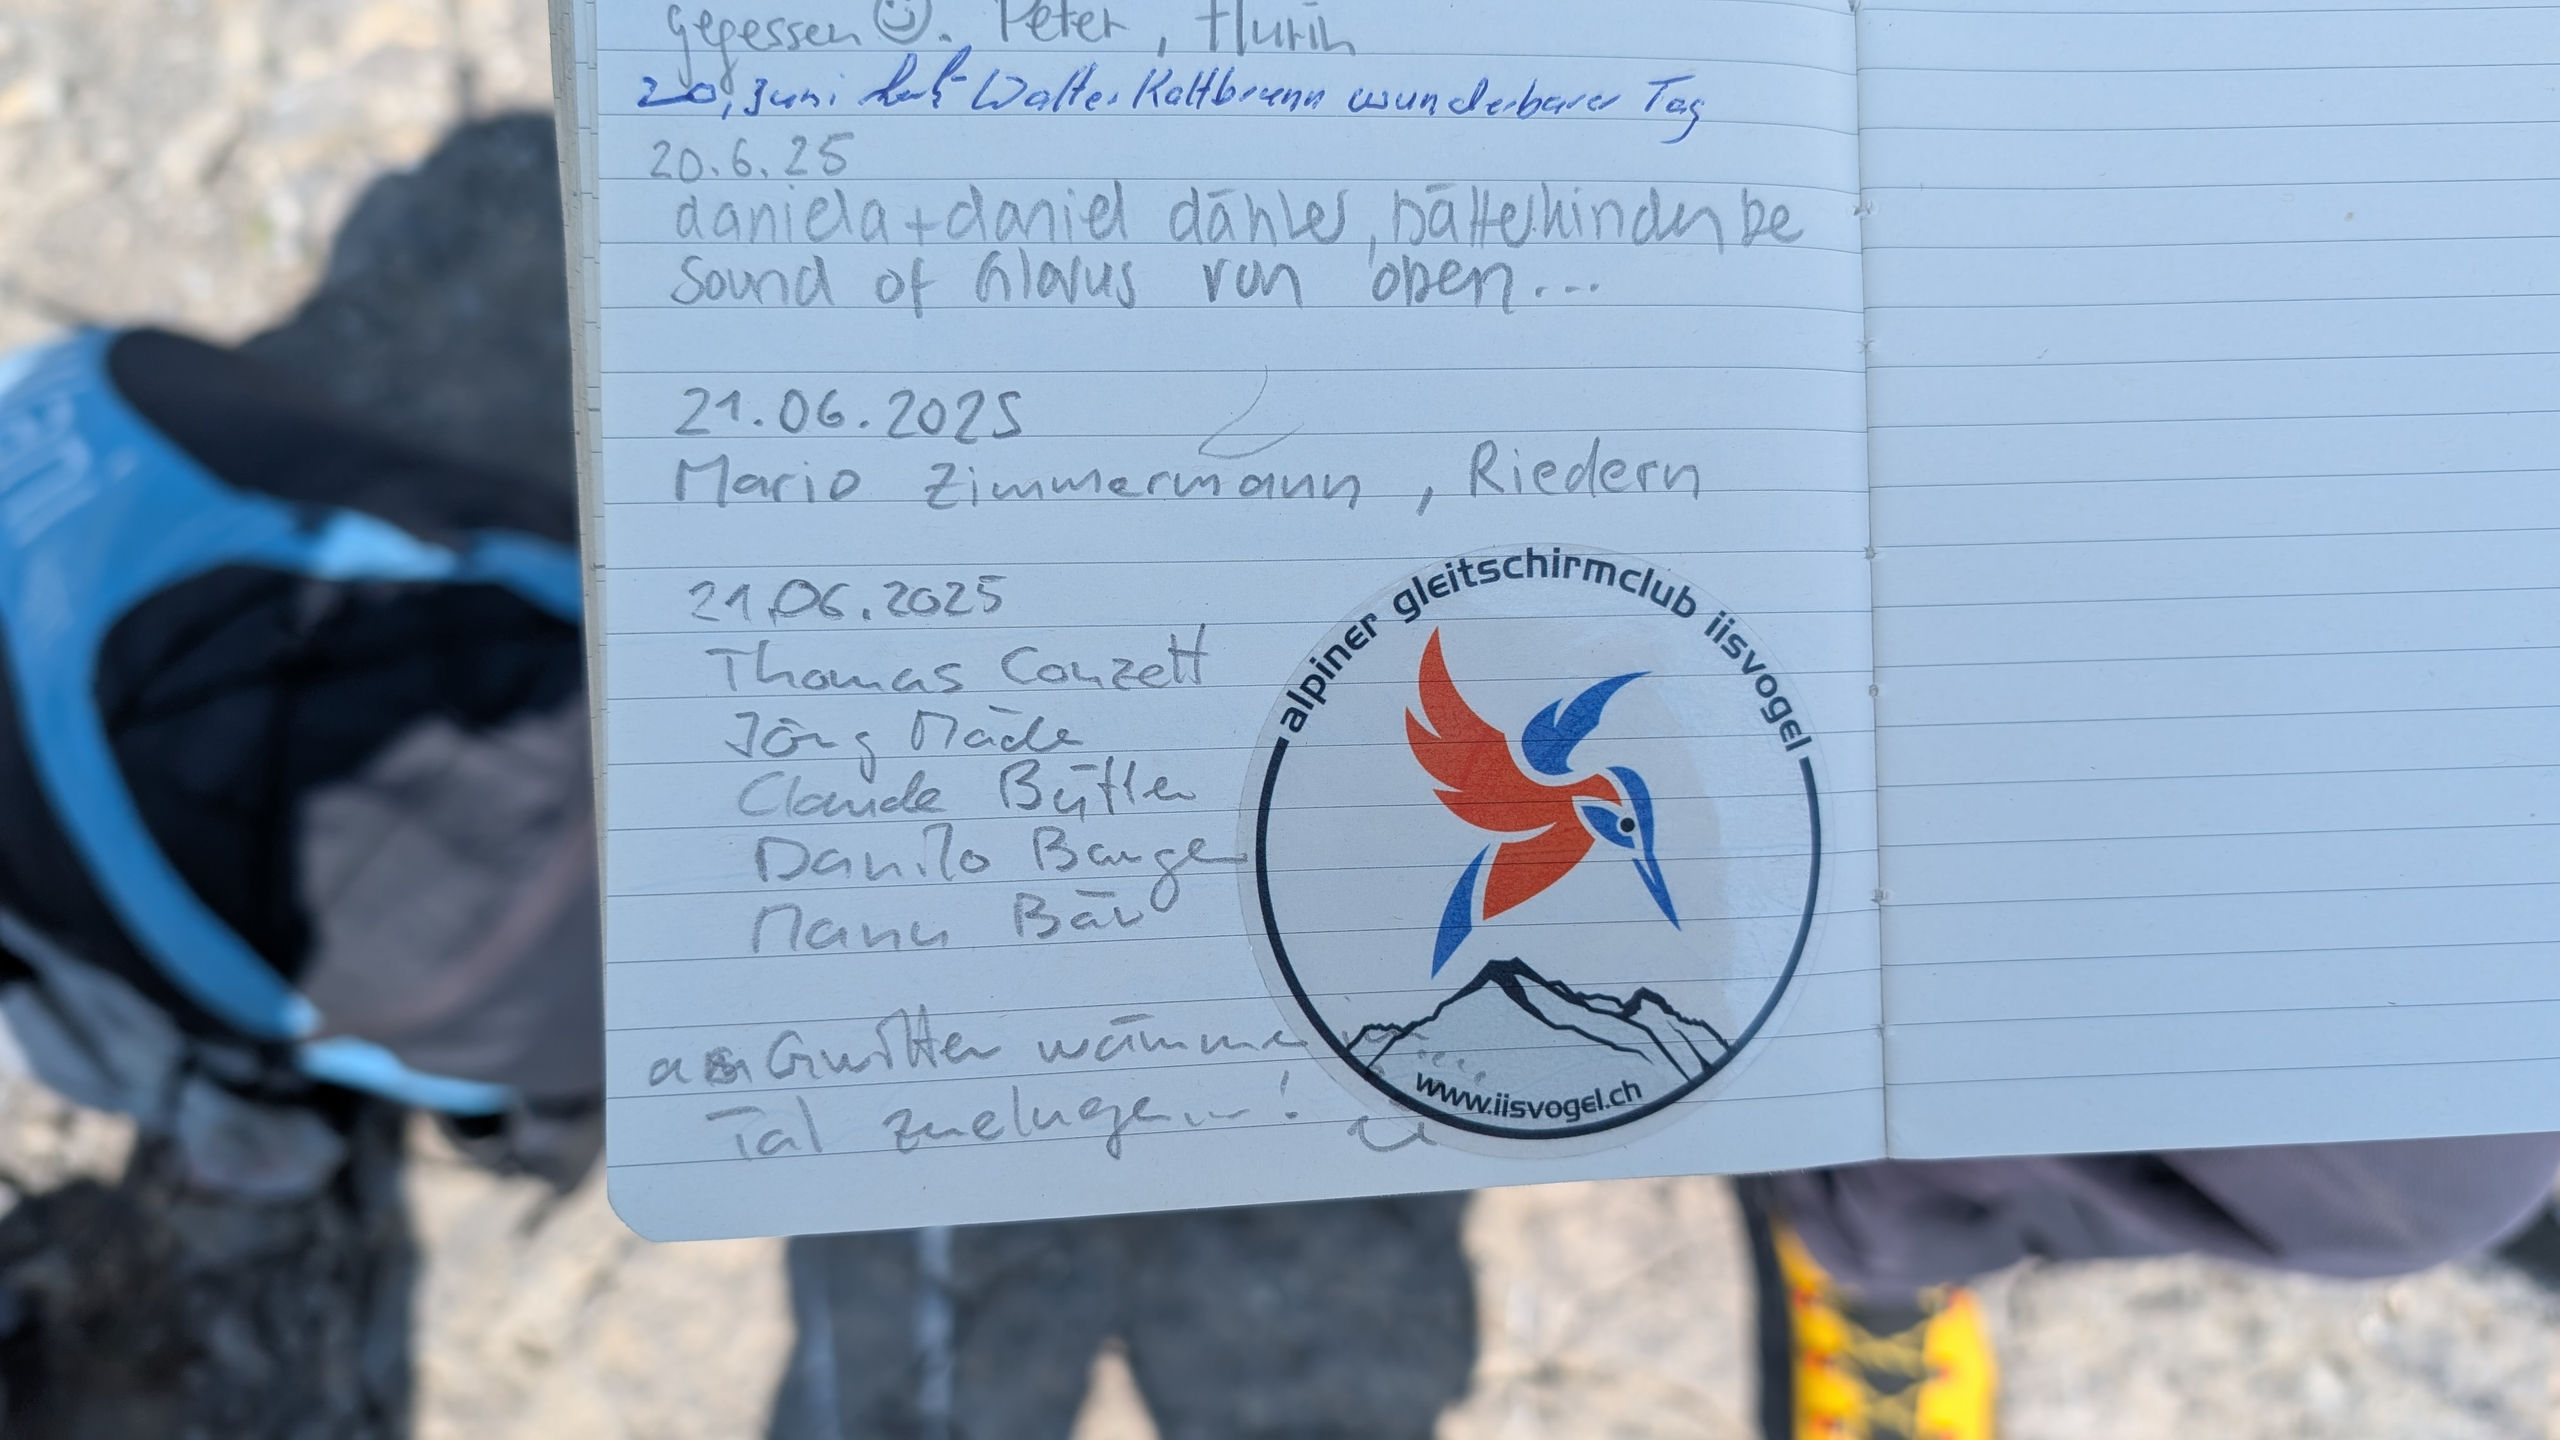 gegessen ☺. Peter, Flurin
20. Juni Walter Kaltbrunn wunderbarer Tag
20.6.25
daniela + daniel dähler, bätterkinden be
Sound of Glarus von oben...
21.06.2025
Mario Zimmermann, Riedern
21.06.2025
Thomas Conzett
Jörg Mäde
Claude Bütler
Danilo Banger
Manu Bär
Gwitter wämmer
Tal zueluege...!
alpiner gleitschirmclub iisvogel
www.iisvogel.ch